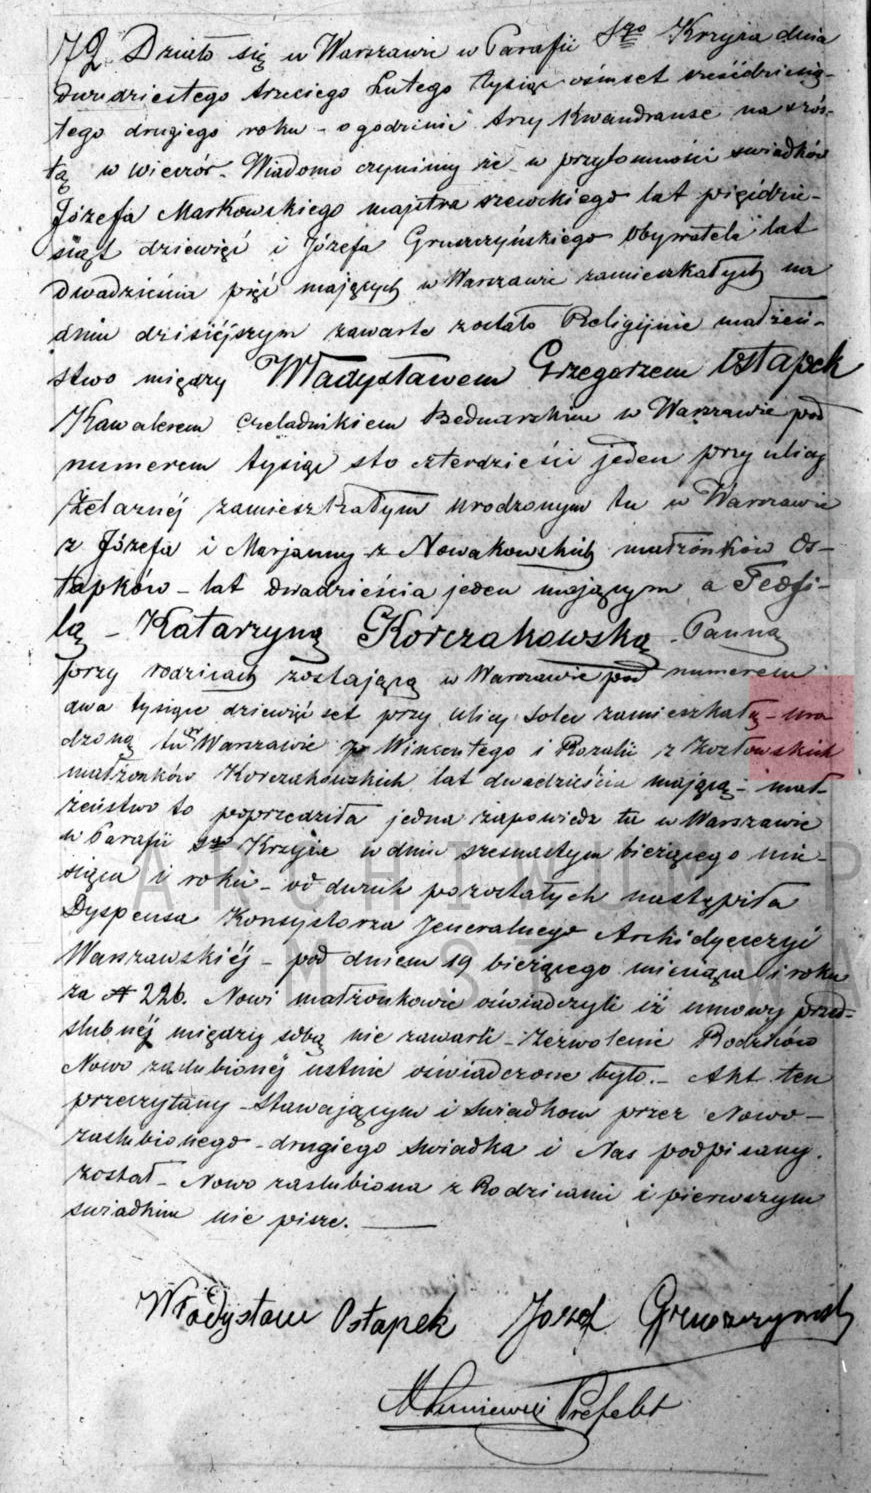 72 Działo się w Warszawie w Parafii Sgo Krzyża dnia
dwudziestego trzeciego Lutego tysiąc ośmset sześćdziesią-
tego drugiego roku – o godzinie trzy kwandranse na szós-
tą w wieczór – Wiadomo czynimy że w przytomności swiadków
Józefa Markowskiego majstra szewckiego lat pięśdzie-
siąt dziewięć i Józefa Gruszczyńskiego Obywatela lat
dwadzieścia pięć mających w Warszawie zamieszkałych na
dniu dzisiéjszym zawarte zostało Religijnie małżeń-
stwo między Władysławem Grzegorzem Ostapek
Kawalerem czeladnikiem Bednarskim w Warszawie pod
numerem tysiąc sto czterdzieści jeden przy ulicy
Żelaznéj zamieszkałym urodzonym tu w Warszawie
z Józefa i Marjanny z Nowakowskich małżonków Os-
tapków – lat dwadzieścia jeden mającym a Teofi-
lą – Katarzyną Korczakowską – Panną
przy rodzicach zostającą w Warszawie pod numerem
dwa tysiące dziewięćset przy ulicy Solec zamieszkałą – uro
dzoną tu w Warszawie z Wincentego i Rozalii z Kozłowskich
małżonków Korczakowskich lat dwadzieścia mającą – mał-
żeństwo to poprzedziła jedna zapowiedz tu w Warszawie
w Parafii Sgo Krzyża w dniu szesnastym bieżącego mie-
siąca i roku – od dwuch pozostałych nastąpiła
Dyspensa Konsystorza Jeneralnego Archidyecezyi
Warszawskiéj – pod dniem 19 bieżącego miesiąca i roku
za N 226. Nowi małżonkowie oświadczyli iż umowy przed-
slubnéj między sobą nie zawarli – Zezwolenie Rodziców
Nowo zaslubionéj ustnie oświadczone było. – Akt ten
przeczytany – stawającym i swiadkom przez Nowo–
zaslubionego – drugiego swiadka i Nas podpisany
został – Nowo zaslubiona z Rodzicami i pierwszym
swiadkiem nie pisze.
Władysław Ostapek Jozef Gruszczynski
Prefekt
ARCHIWUM P
M. ST. WA